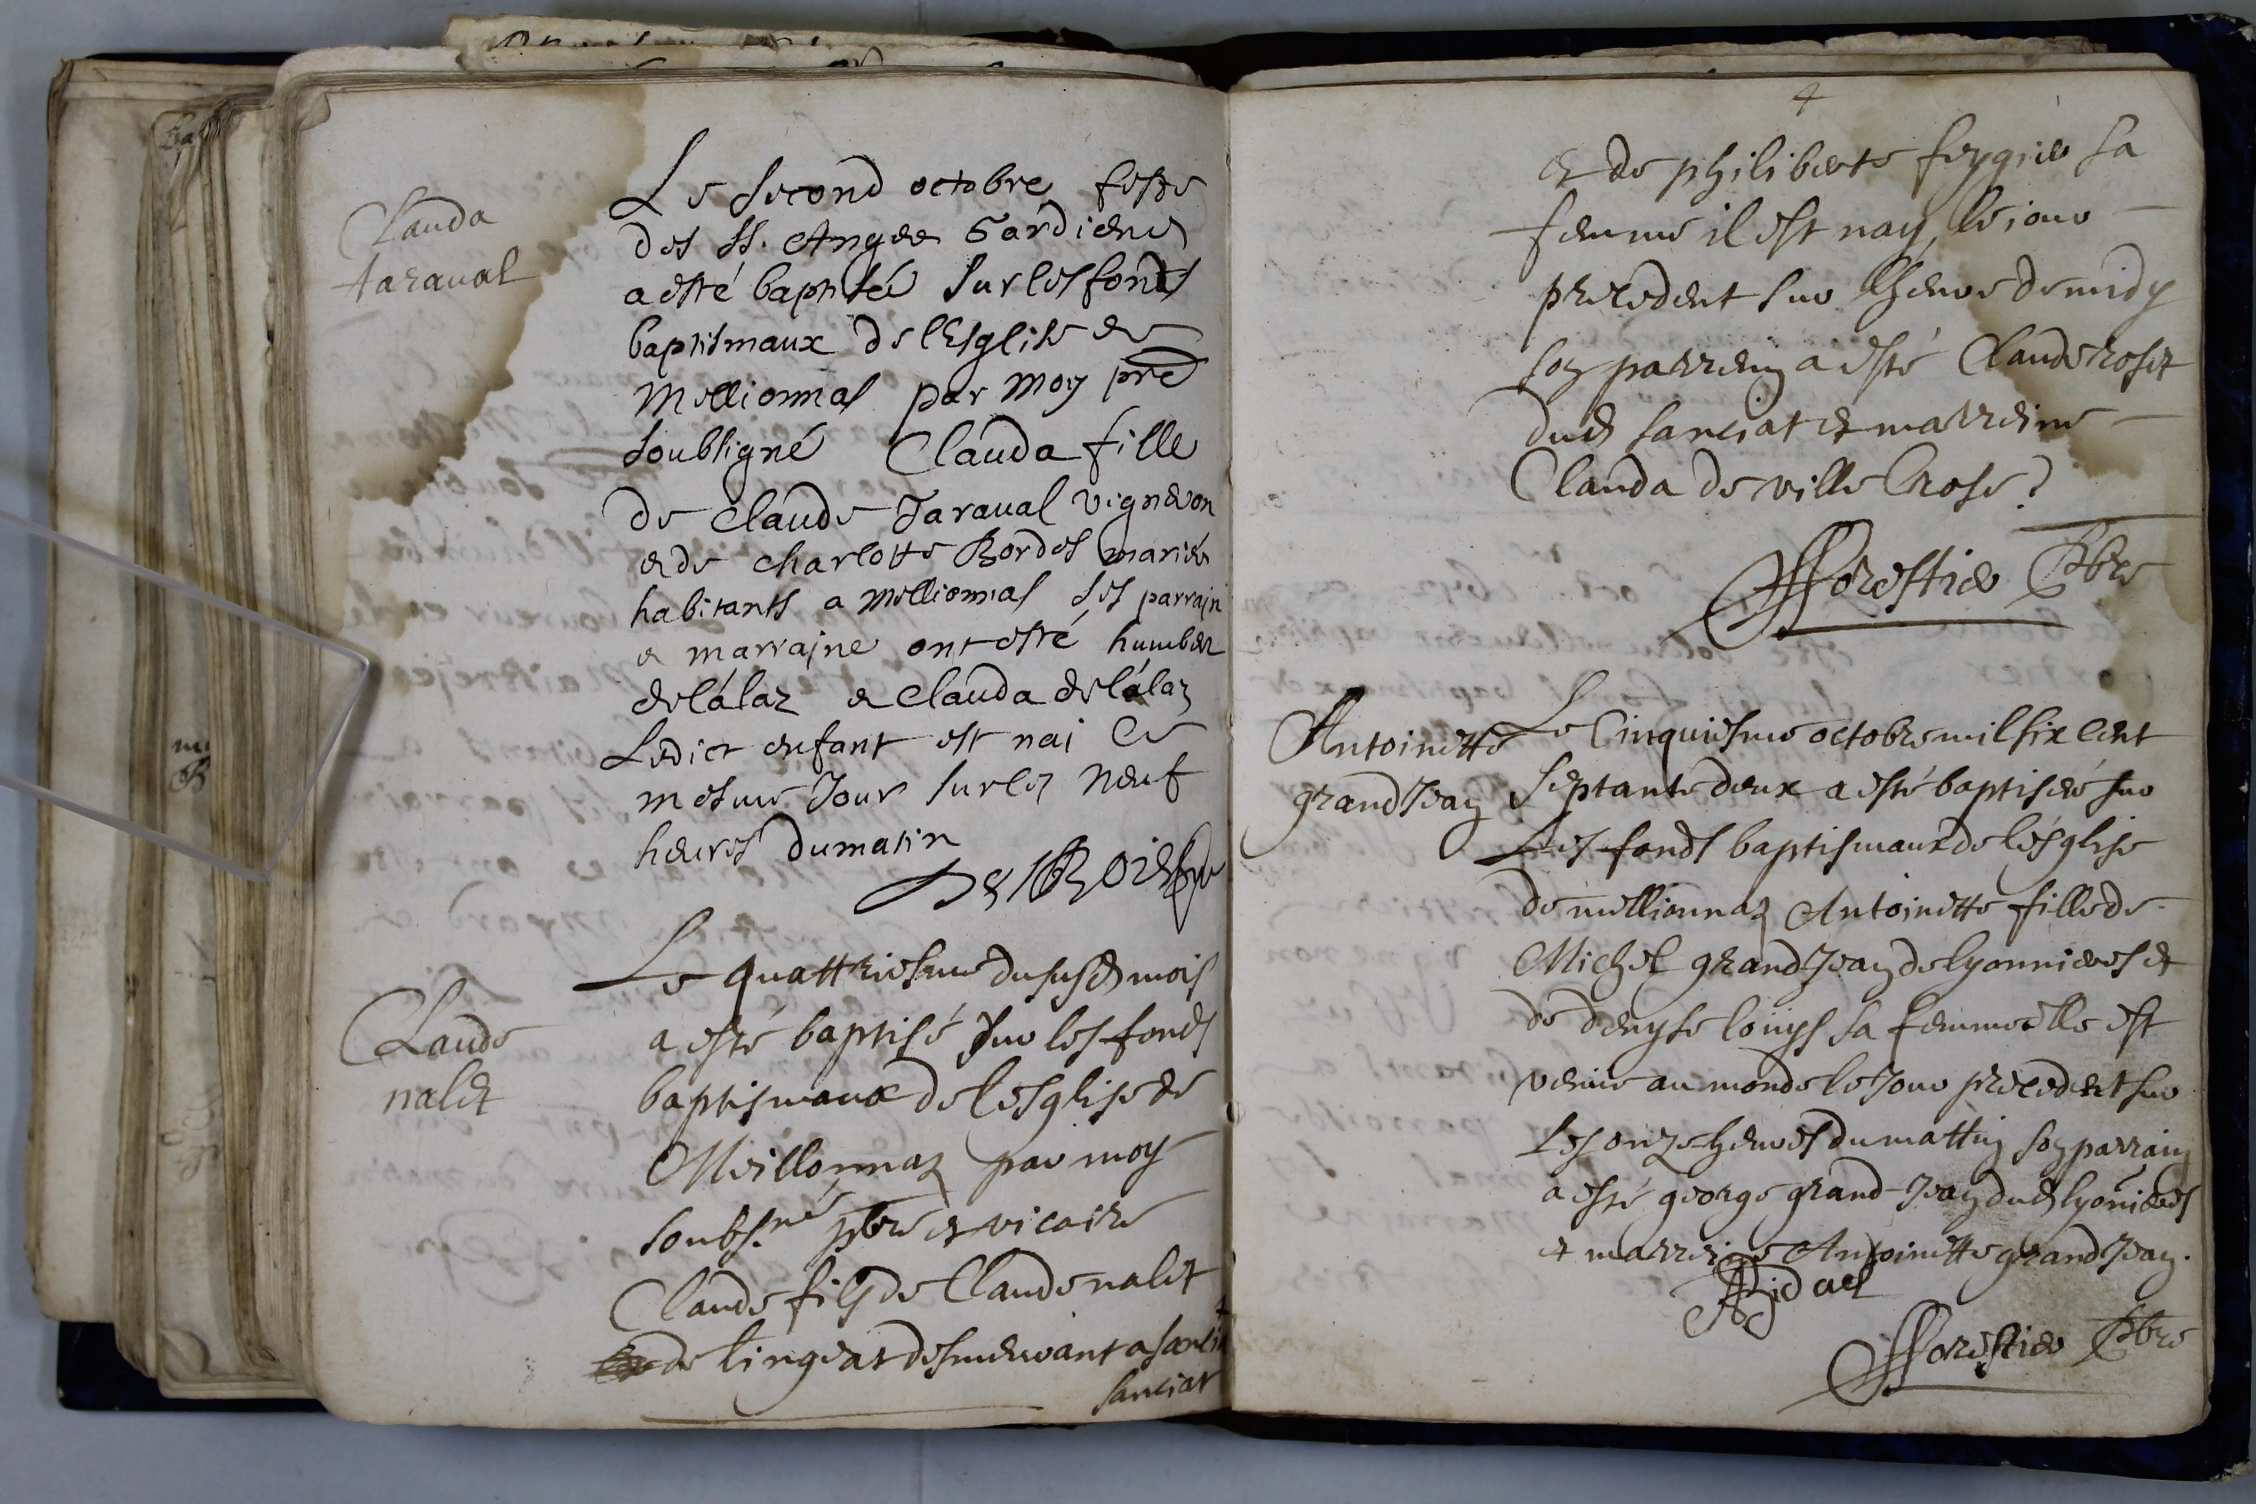 Clauda
taraual
Le second octobre feste
des SS. Anges Gardiens
a esté baptisée sur les fonds
baptismaux de l'Esglise de
Mellionnas par moy pre
soubsigné Clauda fille
de Claude Taraual vigneron
& de Charlotte Bordes mariés
habitants a Mellionnas ses parrain
& marrajne ont esté humber
delálaz & Clauda delálaz
Ledict enfant est nai Ce
mesme Jour sur les Neuf
heures du matin

Claude
nalet
Le quattriesme du susd mois
a esté baptisé sur les fonds
baptismaux de lesglise de
Meillonnaz par moy
soubs.né pbre et vicaire
Claude fils de Claude nalet
de lingeat desmeurant a
sanciat
4
et de philiberte feygier sa
femme il est nay, le jour
precedent sur lheure de midy
son parrein a esté Claude roset
dud sanciat et marreine
Clauda de ville Crose
fforestier Pbre
Antoinette
grand Jean
Le Cinquiesme octobre mil six cent
septante deux a esté baptiseé sur
Les fonds baptismaux de lésglise
de millionnaz Antoinette fille de
Michel grand Jean de lyonnieres et
de denyse loüys sa femme elle est
venüe au monde le Jour precedent sur
Les onze heures du mattin son parrain
a esté george grand-Jean dud lyonnieres
et marreine Antoinette grand Jean.
fforestier Pbre